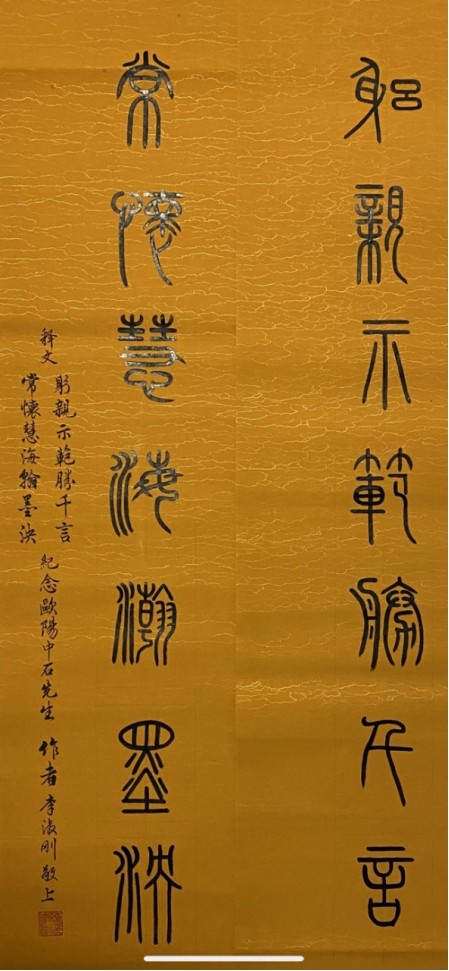 躳親示範勝千言
常懷慧海瀚墨泱
释文
躬親示範勝千言
常懷慧海翰墨泱
紀念歐陽中石先生 作者 李淑刚 敬上